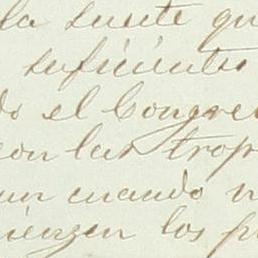 la suerte qu
suficiente
do el Congre
con las trop
un cuando n
ienzen los p